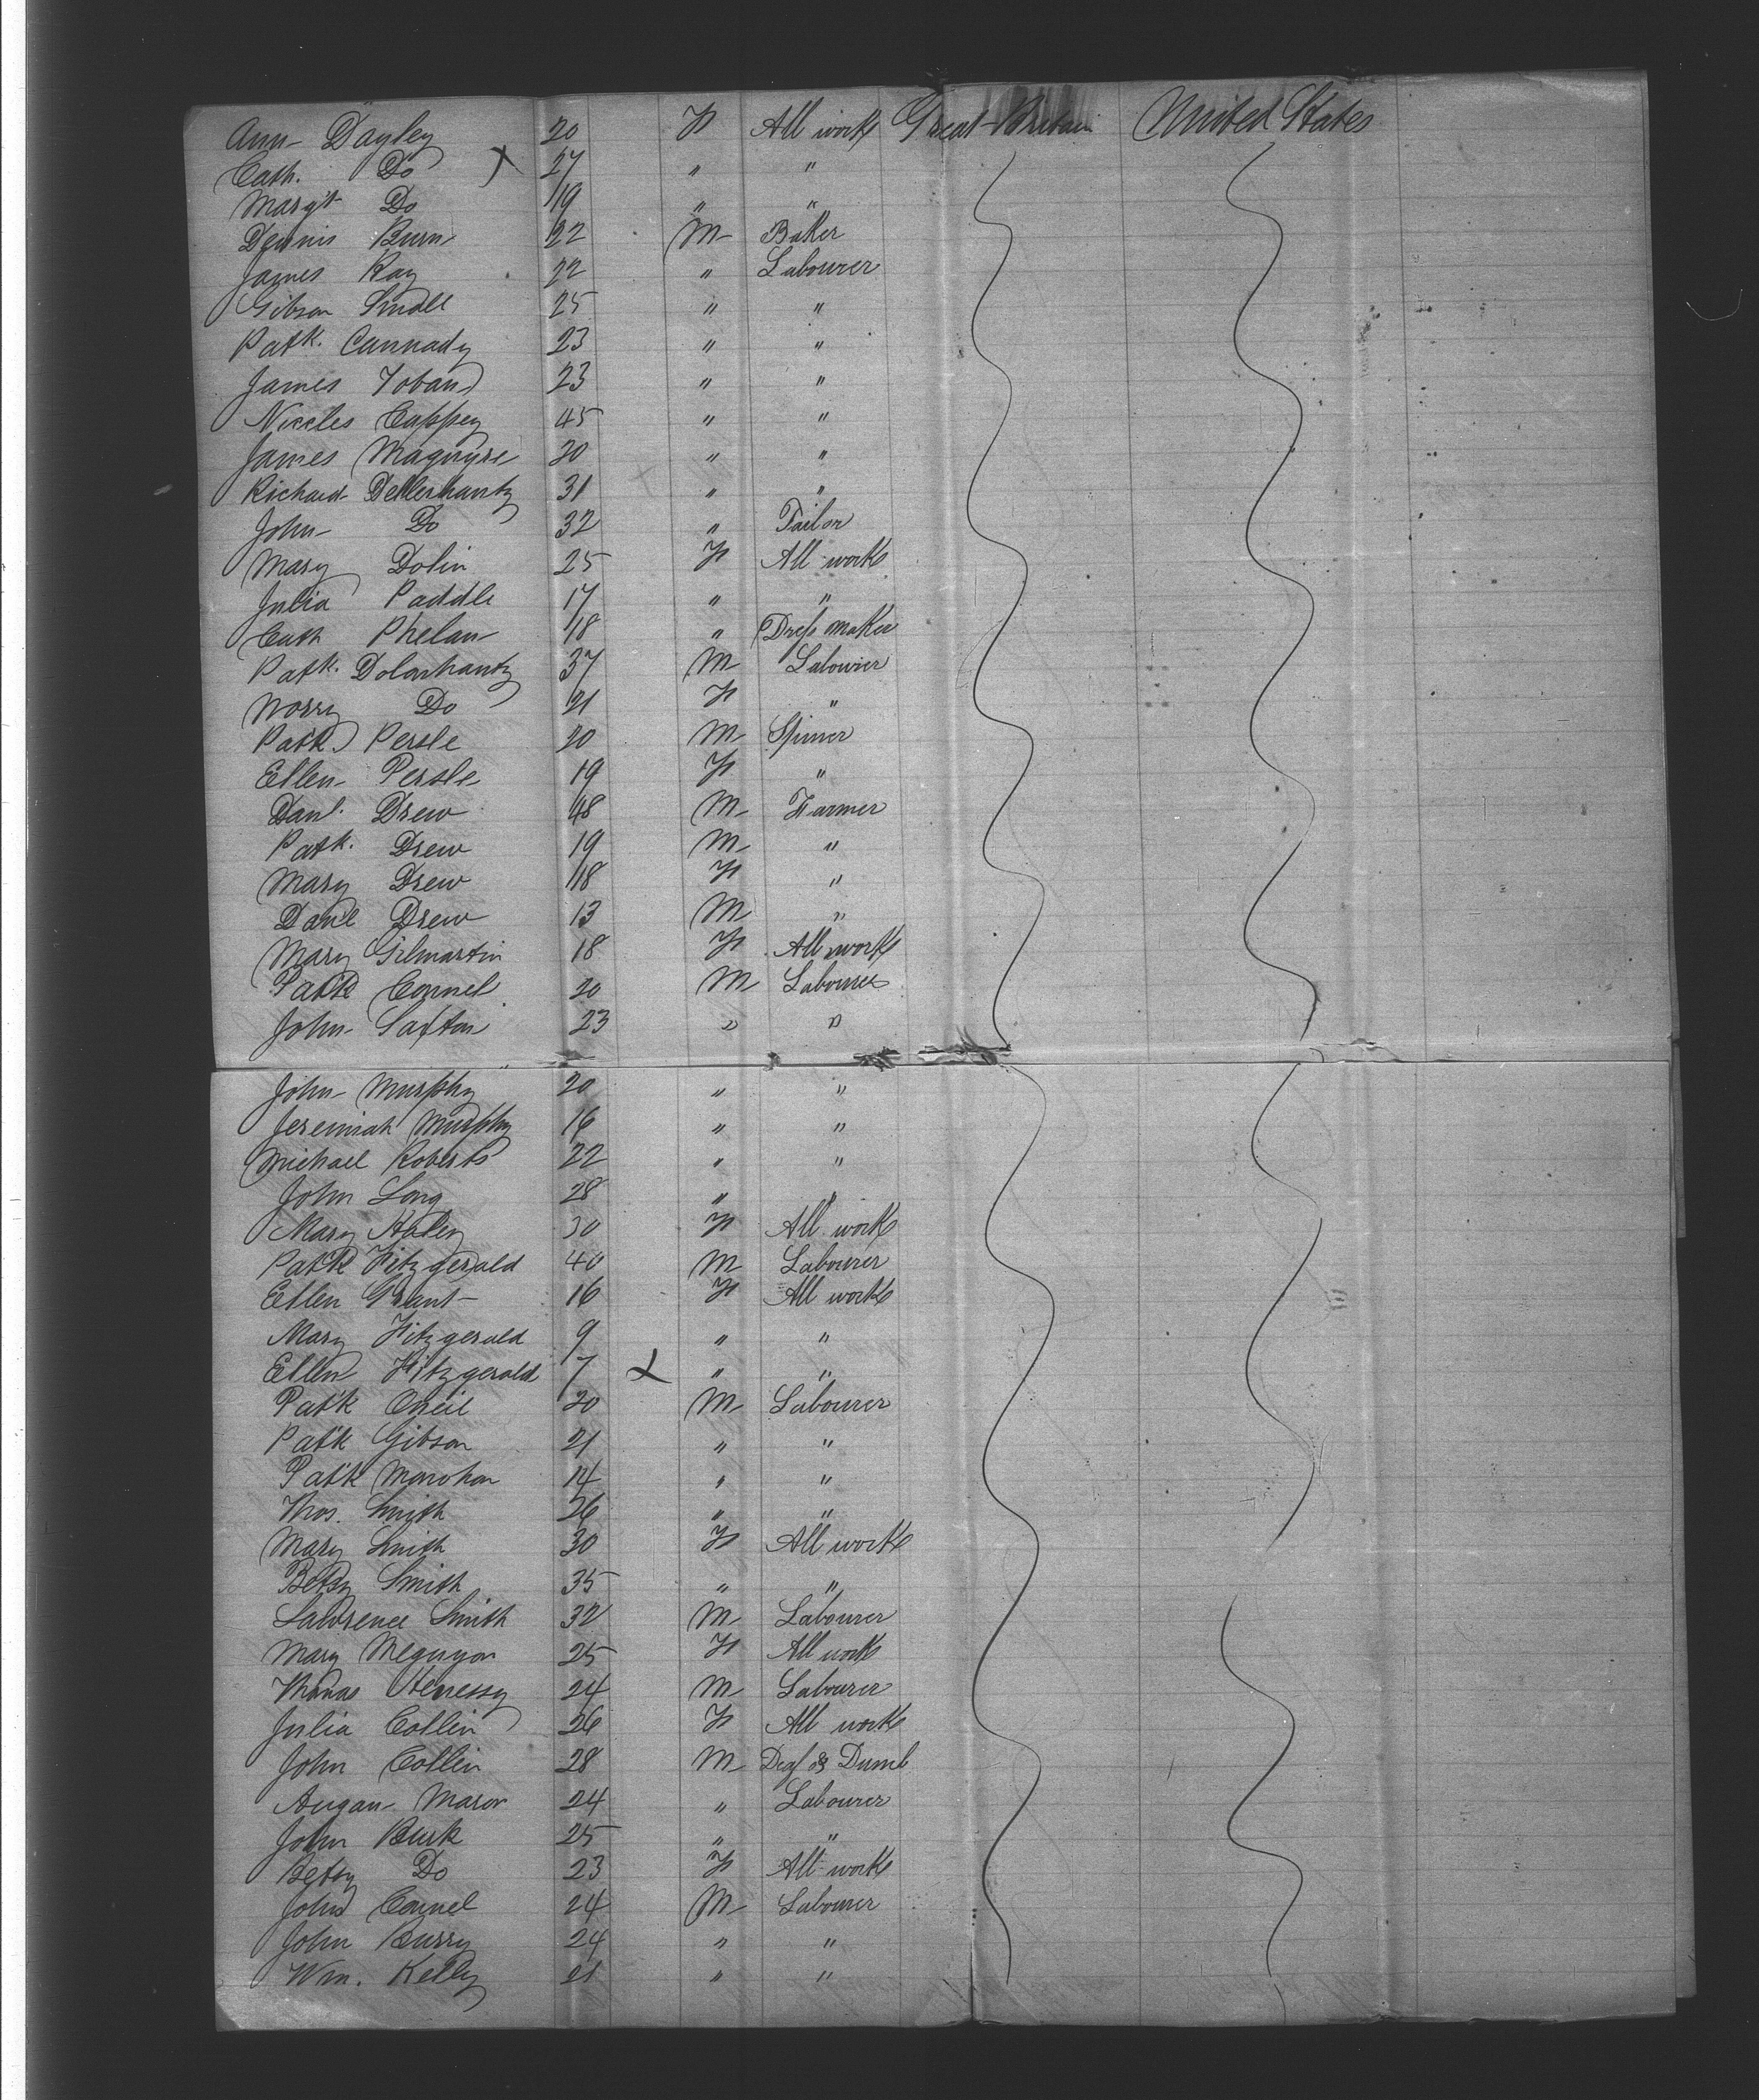 Ann Dayley 20 F All work Great Britain United States
Cath. Do X 27 " "
Marg't Do 19 " "
Dennis Burn 22 M Baker
James Ray 22 " Labourer
Gibson Sindle 25 " "
Patk. Cannady 23 " "
James Toban 23 " "
Niccles Cuppey 45 " "
James Maguyre 30 " "
Richard Dellerhanty 31 " "
John Do 32 " Tailor
Mary Dolin 25 F All work
Julia Paddle 17 " "
Cath Phelan 18 " Dress Maker
Patk. Dolarhanty 37 M Labourer
Norry Do 21 F "
Patk Persle 20 M Spinner
Ellen Persle 19 F "
Danl. Drew 48 M Farmer
Patk. Drew 19 M "
Mary Drew 18 F "
Danl Drew 13 M "
Mary Gilmartin 18 F All work
Patk Connel 20 M Labourer
John Saxton 23 " "
John Murphy 20 " "
Jeremiah Murphy 16 " "
Michael Roberts 22 " "
John Long 28 " "
Mary Haley 30 F All work
Patk Fitzgerald 40 M Labourer
Ellen Grant 16 F All work
Mary Fitzgerald 9 " "
Ellen Fitzgerald 7 X " "
Patk Oneil 20 M Labourer
Patk Gibson 21 " "
Patk Marohan 14 " "
Thos. Smith 26 " "
Mary Smith 30 F All work
Betsy Smith 35 " "
Lawrence Smith 32 M Labourer
Mary Meguyon 25 F All work
Thomas Henessy 24 M Labourer
Julia Collin 26 F All work
John Collin 28 M Deaf & Dumb
Augan Maror 24 " Labourer
John Burk 25 " "
Betsy Do 23 F All work
John Connel 24 M Labourer
John Burry 24 " "
Wm. Kelly 21 " "